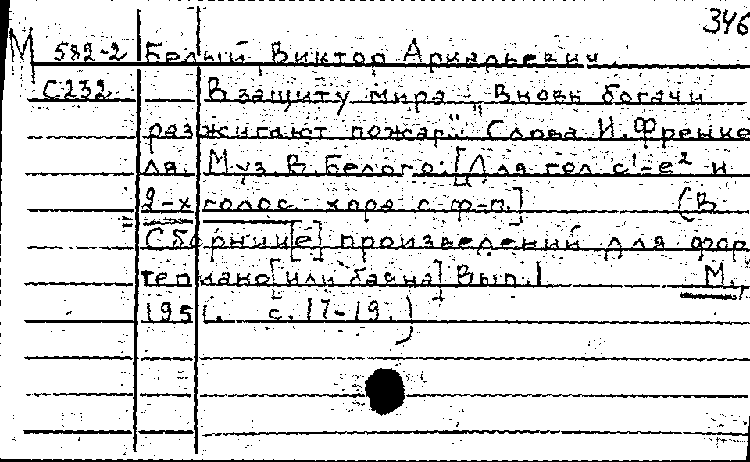 346
М 582-2 Белый Виктор Аркадьевич.
С232 В защиту мира „Вновь богачи
разжигают пожар". Слова И. Френке
ля. Муз В. Белого. [Для гол с¹-е² и
2-х голос. хора с ф-п.] (В
Сборнице[е] произведений для фор
тепиано [или баяна] Вып. 1 М.,
1951. с. 17-19.)